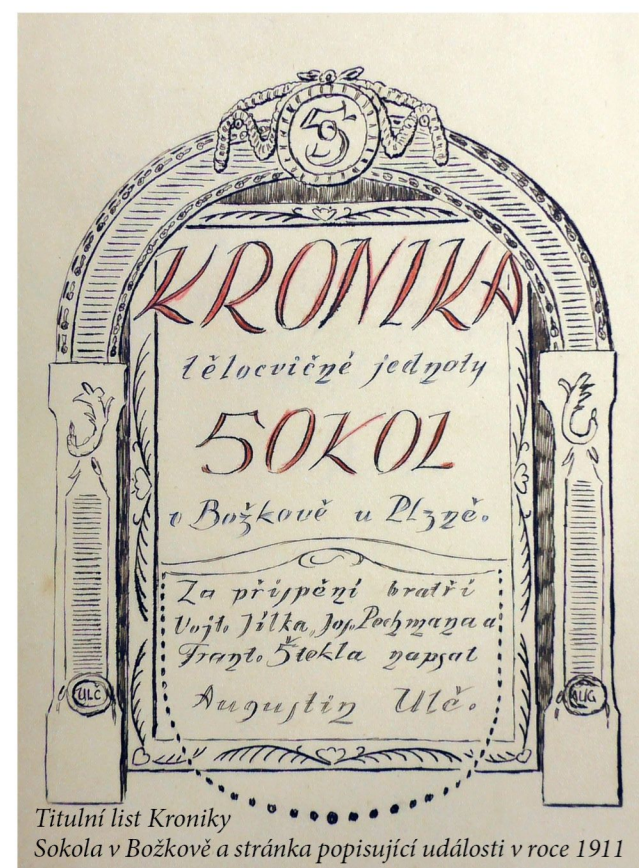 KRONIKA
tělocvičné jednoty
SOKOL
v Božkově u Plzně.
Za přispění bratří
Vojt. Jílka, Jos. Pechmana a
Frant. Štekla napsal
Augustin Ulč.
ULČ
AUG
Titulní list Kroniky
Sokola v Božkově a stránka popisující události v roce 1911